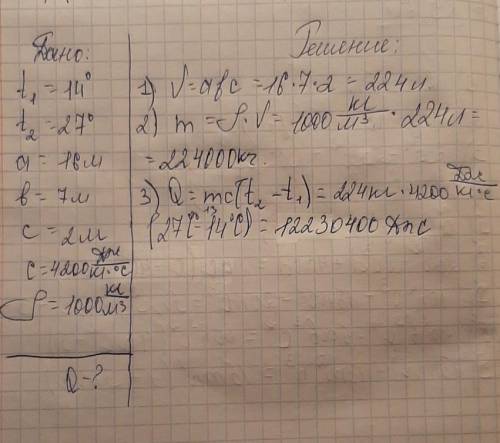 Дано:
t₁ = 14°
t₂ = 27°
a = 16м
b = 7м
c = 2м
c = 4200 Дж/кг·°C
ρ = 1000 кг/м³
Q - ?
Решение:
1) V = abc = 16·7·2 = 224 л.
2) m = ρ·V = 1000 кг/м³ · 224 л =
= 224000 кг.
3) Q = mc(t₂ - t₁) = 224 кг · 4200 Дж/кг·°C
13
(27°C - 14°C) = 12230400 Дж